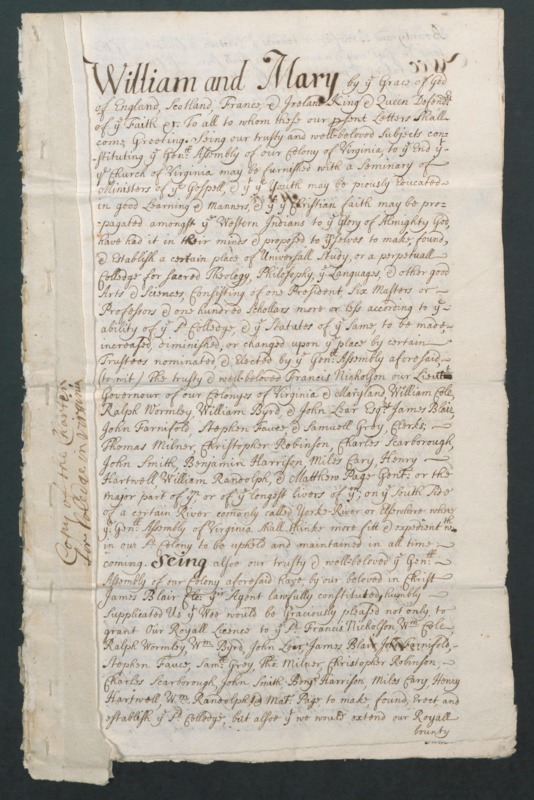 William and Mary by yͤ Grace of God
of England, Scotland, France, & Ireland King & Queen Defendrs
of yͤ Faith &c. To all to whom these our psent Letters Shall
come Greeting. Seing our trusty and well-beloved Subjects con-
stituting yͤ Genll Assembly of our Colony of Virginia, to yͤ End yͭ
yͤ Church of Virginia may be furnished with a Seminary of
Ministers of yͤ Gospell, & yͭ yͤ Youth may be piously Educated
in good Learning & Manners, & yͭ yͤ Christian faith may be pro-
-pagated amongst yͤ Western Indians to yͤ Glory of Almighty God,
have had it in their minds & proposed to yͫselves to make, found,
& Establish a certain place of Universall Study, or a perpetuall
Colledge for Sacred Theology, Philosophy, yͤ Languages, & other good
Arts & Sciences, Consisting of one President, Six Masters or
Professors & one hundred Schollars more or less according to yͤ
ability of yͤ sͩ Colledge, & yͤ Statutes of yͤ Same, to be made
increased, diminished, or changed upon yͤ place by certain
Trustees nominated, & Elected by yͤ Genll Assembly aforesaid
(to wit) The trusty & well-beloved Francis Nicholson our Lieutt
Governour of our Colonyes of Virginia & Maryland, William Cole,
Ralph Wormley, William Byrd, & John Lear Esqrs James Blair,
John Farnifold, Stephen Fauce, & Samuell Grey, Clerks;
Thomas Milner, Christopher Robinson, Charles Scarborough,
John Smith, Benjamin Harrison, Miles Cary, Henry
Hartwell William Randolph, & Matthew Page Gentl: or the
major part of yͫ or of yͤ longest livers of yͫ; on yͤ South Side
of a certain River comonly called Yorke-River or elsewhere where
yͤ Genll Assembly of Virginia shall thinke more fitt & expedient wth
in our sͩ Colony to be upheld and maintained in all time
coming. Seing alsoe our trusty & well-beloved yͤ Genll
Assembly of our Colony aforesaid have, by our beloved in Christ
James Blair Agent lawfully constituted, humbly
Supplicated Us yͭ Wee would be Graciously pleased not only, to
grant Our Royall Licence to yͤ sͩ Francis Nicholson Wm Cole,
Ralph Wormley Wm Byrd, John Lear, James Blair, Jno Fernifold,
Stephen Fauce, Saml Grey Tho Milner, Christopher Robinson,
Charles Scarborough, John Smith Benjn Harrison Miles Cary Henry
Hartwell Wm Randolph, & Mat. Page to make, found, Erect and
establish yͤ sͩ Colledge, but alsoe yͭ we would extend our Royall
bounty
Copy of the Charter
for Colledge in Virginia